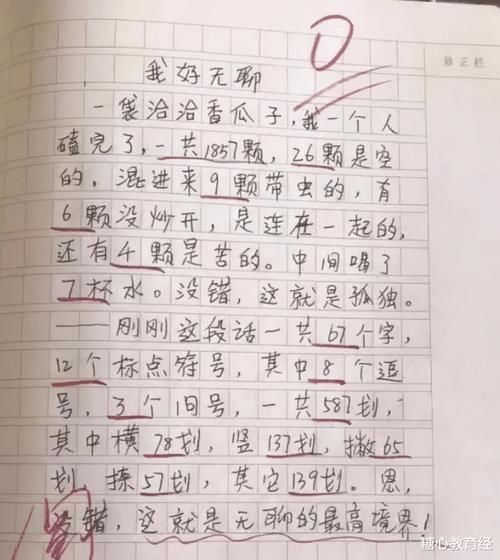 修正栏
0
我好无聊
一袋洽洽香瓜子,我一个人
磕完了,一共1857颗,26颗是空
的,混进来9颗带虫的,有
6颗没炒开,是连在一起的,
还有4颗是苦的。中间喝了
7杯水。没错,这就是孤独。
——刚刚这段话一共67个字,
12个标点符号,其中8个逗
号,3个问号,一共587划,
其中横78划,竖137划,撇65
划,捺57划,其它139划。恩,
错,这就是无聊的最高境界!
糖心教育经